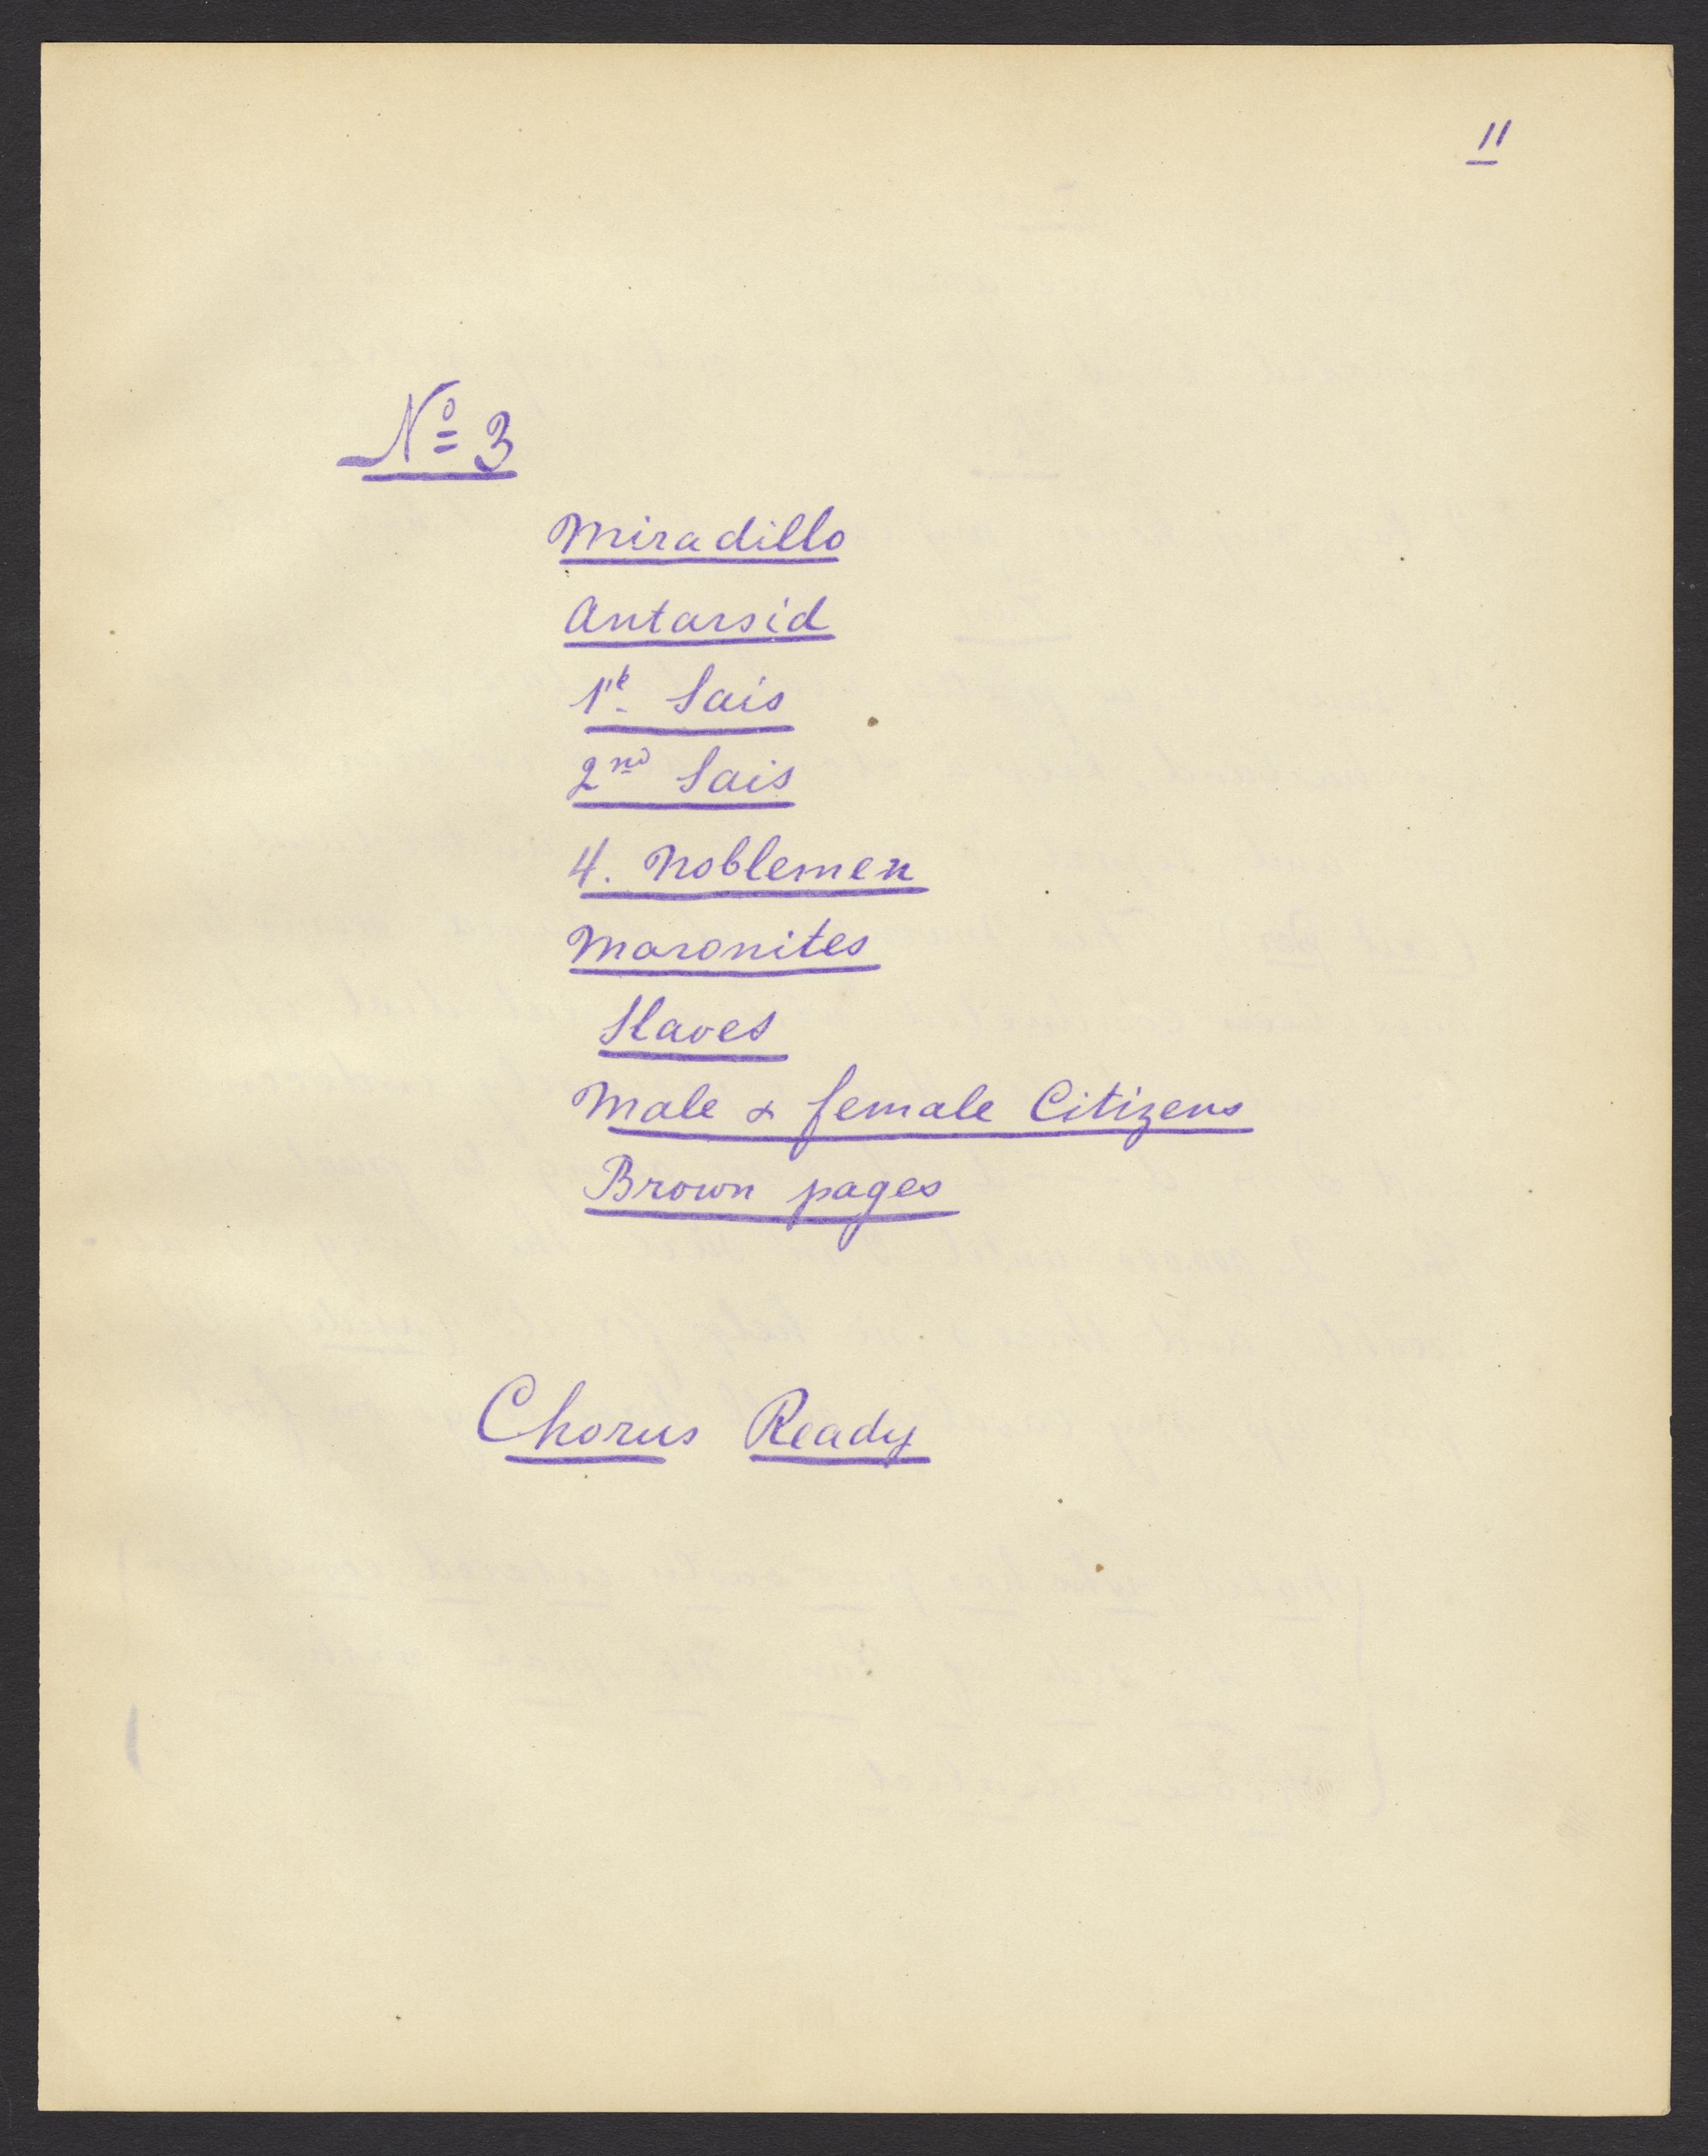 11
Nº 3
Miradillo
Antarsid
1st Sais
2nd Sais
4. Noblemen
Maronites
Slaves
Male & female Citizens
Brown pages
Chorus Ready